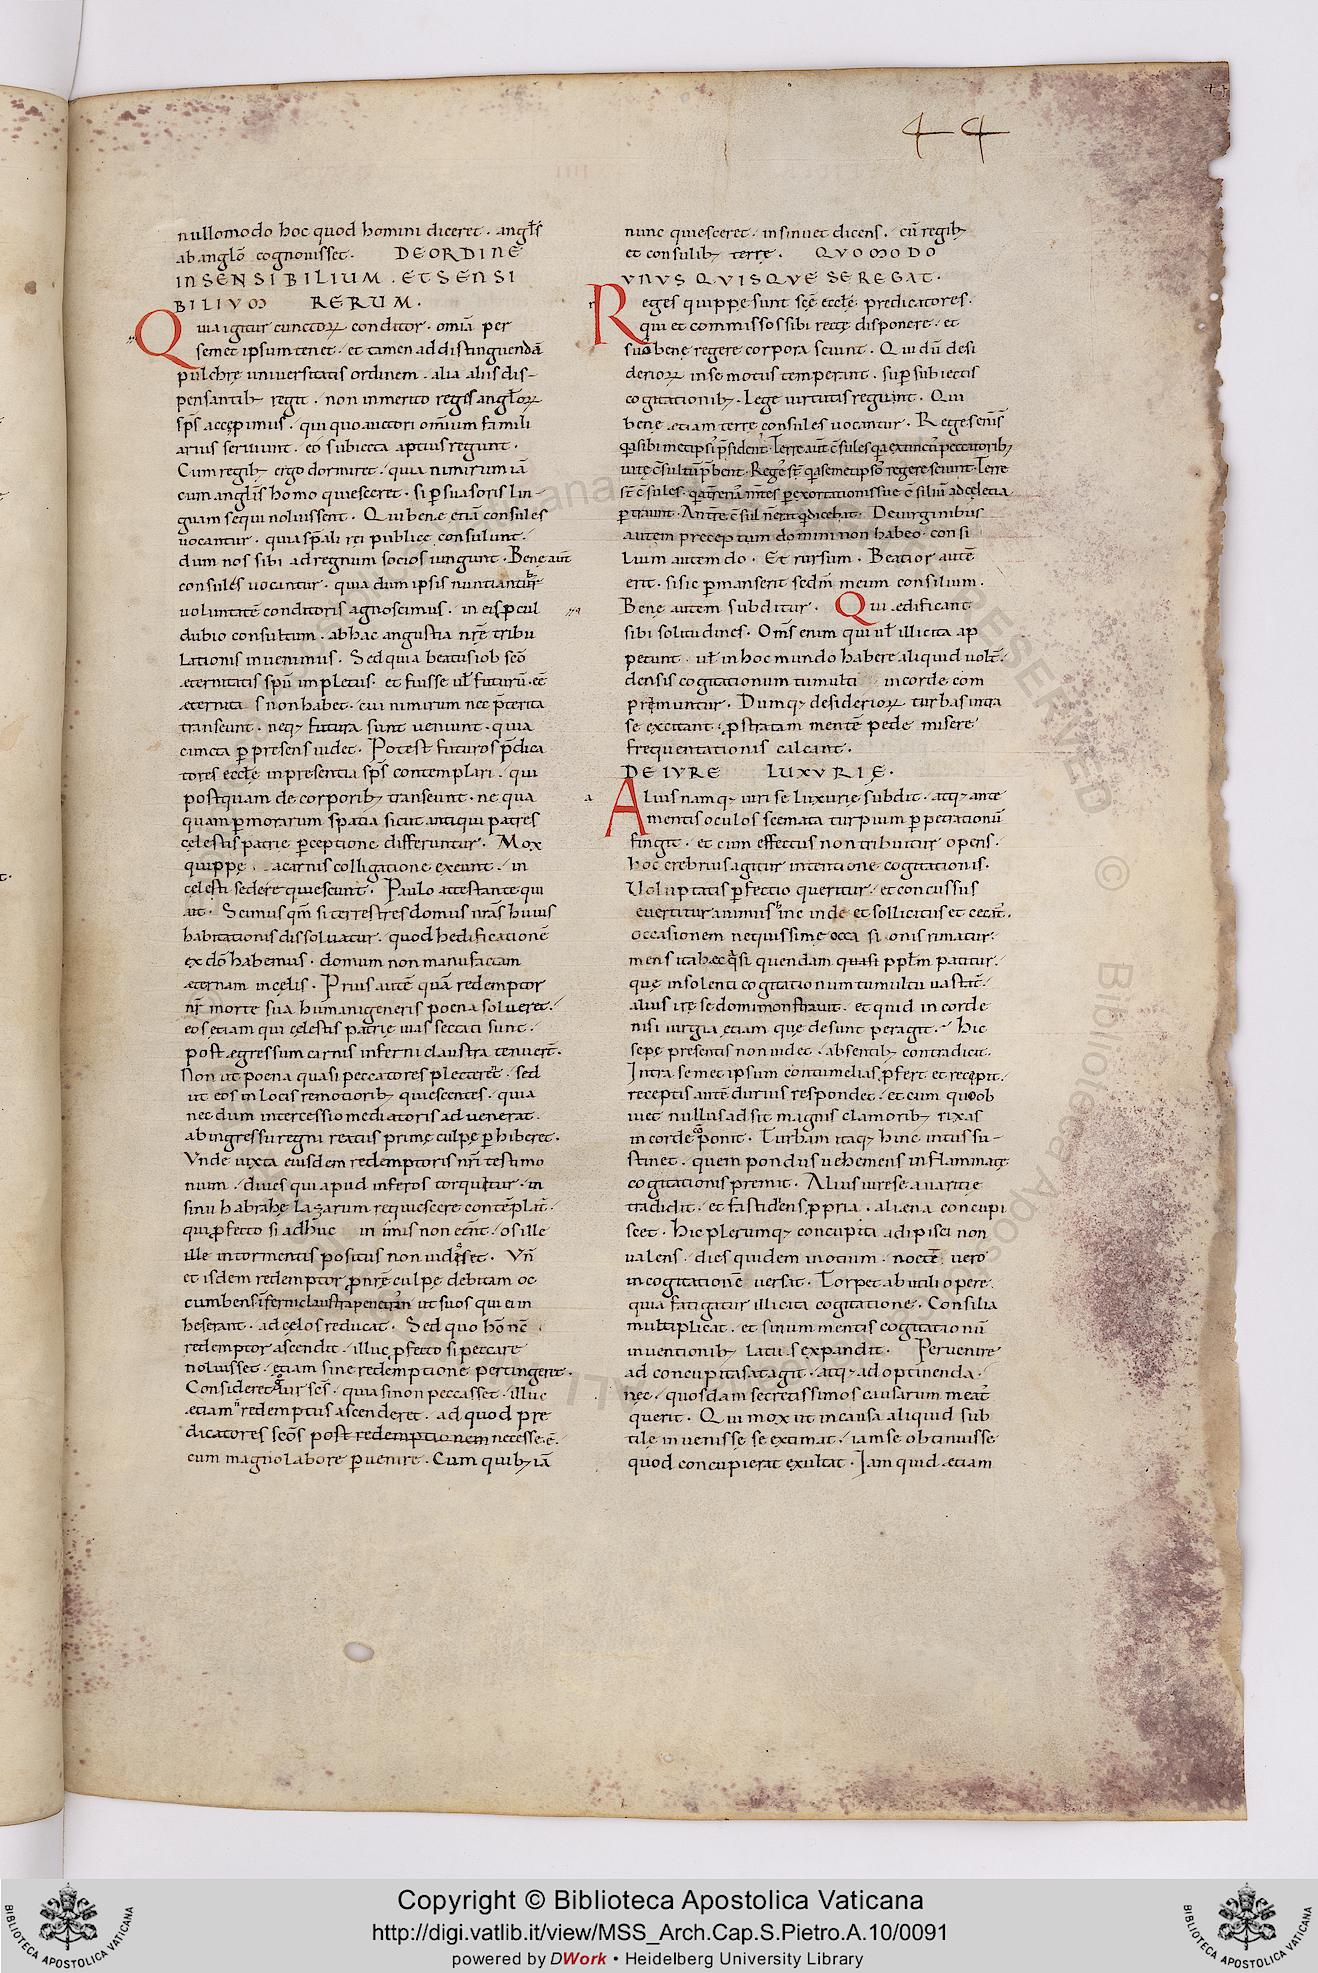 44
nullomodo hoc quod homini diceret . angłs
ab angło cognouisset . DE ORDINE
INSENSIBILIUM . ET SENSI
BILIUM RERUM .
Quia igitur cunctoꝝ conditor . omīa per
semet ipsum tenet . et tamen ad distinguendā
pulchrę uniuersitatis ordinem . alia aliis dis-
pensantibꝫ regit . non inmerito reges angłoꝝ
sps̄ accępimus . qui quo auctori omnium famili
arius seruiunt . eo subiecta aptius regunt .
Cum regibꝫ ergo dormiret . quia nimirum iā
cum angłis homo quiesceret . si ꝑsuasoris lin-
guam sequi noluissent . Qui bene etiā consules
uocantur . quia spāli rei publicę consulunt .
dum nos sibi ad regnum socios iungunt . Bene aut̄
consules uocantur . quia dum ipsis nuntiantibꝫ
uoluntatē conditoris agnoscimus . in eis ꝓcul
dubio consultum . ab hac angustia nrę̄ tribu
lationis inuenimus . Sed quia beatus iob scō
ęternitatis spū impletus . et fuisse uł futurū . eē
ęternita s non habet . cui nimirum nec p̄terita
transeunt . neqꝫ futura sunt ueniunt . quia
cuncta ꝑ presens uidet . Potest futuros p̄dica
tores ecclę̄ in presentia sps̄ contemplari . qui
postquam de corporibꝫ transeunt . ne qua
quam ꝑ morarum spatia sicut antiqui patres
cęlestis patrię ꝑceptione differuntur . Mox
quippe . a carnis colligatione exeunt . in
cęlesti sedere quiescunt . Paulo attestante qui
ait . Scimus qm̄ si terrestres domus nrās huius
habitationis dissoluatur . quod hedificationē
ex dō habemus . domum non manufactam
ęternam in cęlis . Prius autē quā redemptor
nr̄ morte sua humani generis poena solueret .
eos etiam qui cęlestis patrię uias seccati sunt .
post ęgressum carnis inferni claustra tenuer̄ .
Non ut poena quasi peccatores plecteret . sed
ut eos in locis remotioribꝫ quiescentes . quia
nec dum intercessio mediatoris aduenerat .
ab ingressu regni reatus prime culpę ꝓhiberet .
Vnde iuxta eiusdem redemptoris nrī testimo
nium . diues qui apud inferos torquetur . in
sinu habrahę Lazarum requiescere contēplat̄ .
qui ꝓfecto si adhuc in imis non eēnt . os ille
ille in tormentis positus non uidisset . Vn̄
et isdem redemptor ꝓ nrę̄ culpę debitam oc
cumbens inferni claustra penetrauit ut suos qui ei in
heserant . ad cęlos reducat . Sed quo hō nc̄
redemptor ascendit . illuc ꝓfecto si peccare
noluisset . etiam sine redemptione pertingeret .
Consideret uir scs̄ . quia si non peccasset . illuc
ętiam redemptus ascenderet . ad quod pre
dicatores scōs post redemptionem necesse . ē
cum magno labore ꝑuenire . Cum quibꝫ iā
nunc quiesceret . insinuet dicens . cū regibꝫ
et consulibꝫ terrę . QUOMODO
VNVSQVISQVE SE REGAT .
Reges quippe sunt scē ecclę̄ predicatores .
qui et commissos sibi recte disponere . et
sua bene regere corpora sciunt . Qui dū desi
derioꝝ in se motus temperant . suꝑ subiectis
cogitationibꝫ . Lege uirtutis regunt . Qui
bene ętiam terrę consules uocantur . Reges enīs
autem preceptum domini non habeo . consi
lium autem do . Et rursum . Beatior autē
erit . si sic ꝑmanserit sedm̄ meum consilium .
Bene autem subditur . Qui ędificant
sibi solitudines . Oms̄ enim qui uł illicita ap
petunt . uł in hoc mundo habere aliquid uolt̄ .
densis cogitationum tumulti in corde com
primuntur . Dumqꝫ desiderioꝝ turbas intra
se excitant . ꝓstratam mentē pede miserę
frequentationis calcant .
DE IVRE LUXVRIĘ .
Alius namqꝫ uiri se luxurię subdit . atqꝫ ante
mentis oculos scemata turpium ꝑpetrationū
fingit . et cum effectus non tribuitur opens .
hoc crebrius agitur intentione cogitationis .
Voluptatis ꝑfectio queritur . et concussus
euertitur animus hinc inde et sollicitus et cecat̄ .
occasionem nequissimę occa si onis rimatur .
mens ita hec q̇si quendam quasi ppłm patitur .
quę insolenti cogitationum tumultu uastat̄ .
alius irę se domi monstrauit . et quid in corde
nisi iurgia etiam quę desunt peragit . Hic
sepe presentis non uidet . absentibꝫ contradicit .
Intra semet ipsum contumelias ꝓfert et recipit .
receptis autē durius respondet . et cum qui ob
uiet nullus adsit magnis clamoribꝫ rixas
in corde cōponit . Turbam itaqꝫ hinc intus su-
stinet . quem pondus uehemens inflammatę
cogitationis premit . Alius iuri se auaritię
tradidit . et fastidens ꝓpria . aliena concupi
scet . Hic plerumqꝫ concupita adipisci non
ualens . dies quidem in otium . noctē uero
in cogitationē uersat . Torpet ab utili opere
quia fatigatur illicita cogitatione . Consilia
multiplicat . et sinum mentis cogitationū
inuentionibꝫ latius expandit . Peruenire
ad concupita satagit . atqꝫ ad optinenda .
nec . quosdam secretissimos causarum meat̄
querit . Qui mox ut in causa aliquid sub
tile inuenisse se extimat . iam se obtinuisse
quod concupierat exultat . Iam quid ętiam
Copyright © Biblioteca Apostolica Vaticana
http://digi.vatlib.it/view/MSS_Arch.Cap.S.Pietro.A.10/0091
powered by DWork • Heidelberg University Library